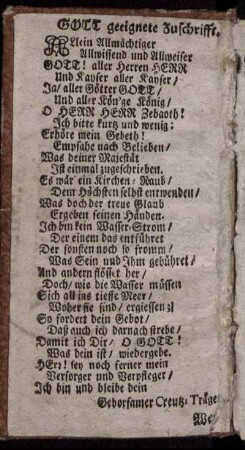 GOTT geeignete Zuschrifft.
Allein Allmächtiger
Allwissend und Allweiser
GOTT! aller Herren HERR
Und Kayser aller Kayser/
Ja/ aller Götter GOTT/
Und aller Kön'ge König/
O HERR HERR Zebaoth!
Ich bitte kurtz und wenig:
Erhöre mein Gebeth!
Empfahe nach Belieben/
Was deiner Majestät
Ist einmal zugeschrieben.
Es wär' ein Kirchen-Raub/
Dem Höchsten selbst entwenden/
Was doch der treue Glaub
Ergeben seinen Händen.
Ich bin kein Wasser-Strom/
Der einem das entführet
Der sonsten noch so fromm/
Was Sein und Ihm gebühret/
Und andern flösset her/
Doch/ wie die Wasser müssen
Sich all ins tieffe Meer/
Woher sie sind/ ergiessen;
So fordert dein Gebot/
Daß auch ich darnach strebe/
Damit ich Dir/ O GOTT!
Was dein ist/ wiedergebe.
HErr! sey noch ferner mein
Versorger und Verpfleger/
Ich bin und bleibe dein
Gehorsamer Creutz-Träger